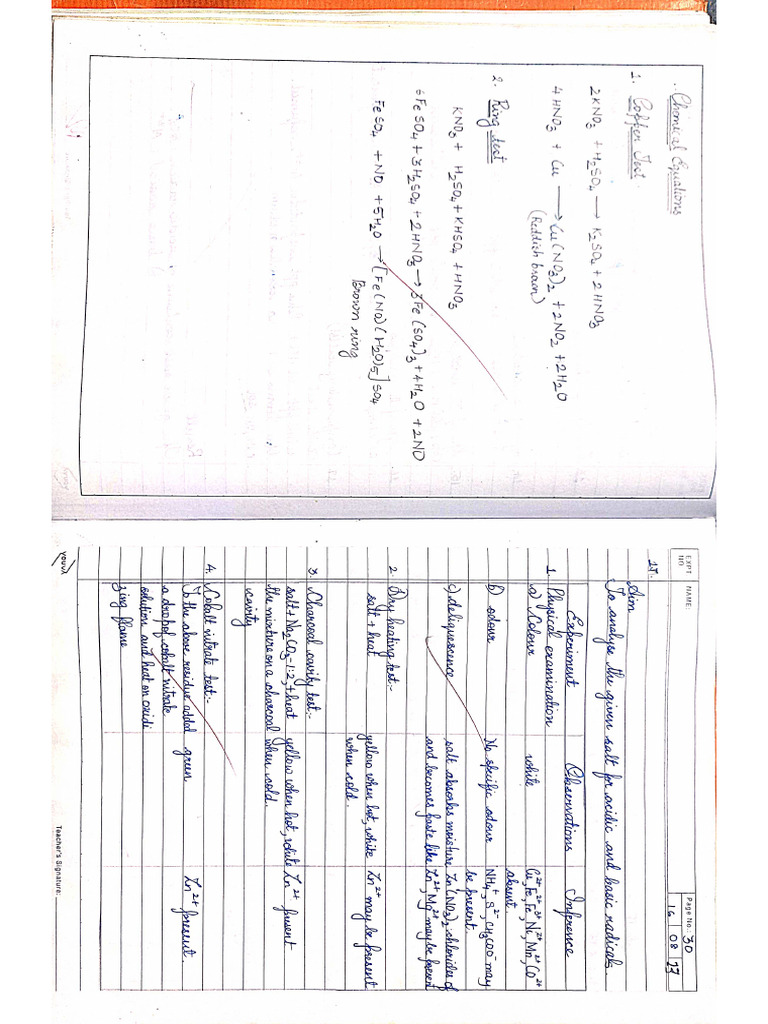 Chemical Equations
1. Copper Test
2KNO3 + H2SO4 → K2SO4 + 2HNO3
4HNO3 + Cu → Cu(NO3)2 + 2NO2 + 2H2O
(Reddish brown)
2. Ring test
KNO3 + H2SO4 + KHSO4 + HNO3
6FeSO4 + 3H2SO4 + 2HNO3 → 3Fe(SO4)3 + 4H2O + 2NO
FeSO4 + NO + 5H2O → [Fe(NO)(H2O)5]SO4
Brown ring
EXPT NO. NAME: Page No.: 30
16 08 23
Aim
To analyse the given salt for acidic and basic radicals
Experiment Observations Inference
1. Physical examination
a) Colour white Cu2+, Fe2+, Fe3+, Ni2+, Mn2+, Co2+
absent.
b) odour No specific odour NH4+, S2-, CH3COO- may
be present.
c) deliquescence salt absorbs moisture Zn(NO3)2, chlorides of
and becomes paste like Zn2+, Mg2+ may be present
2. Dry heating test:-
salt + heat yellow when hot, white Zn2+ may be present
when cold.
3. Charcoal cavity test:-
salt + Na2CO3 - 1:2, + heat yellow when hot, white Zn2+ present
the mixture on a charcoal when cold.
cavity
4. Cobalt nitrate test:-
To the above residue added green Zn2+ present.
a drop of cobalt nitrate
solution and heat on oxidi
zing flame
youva
Teacher's Signature: